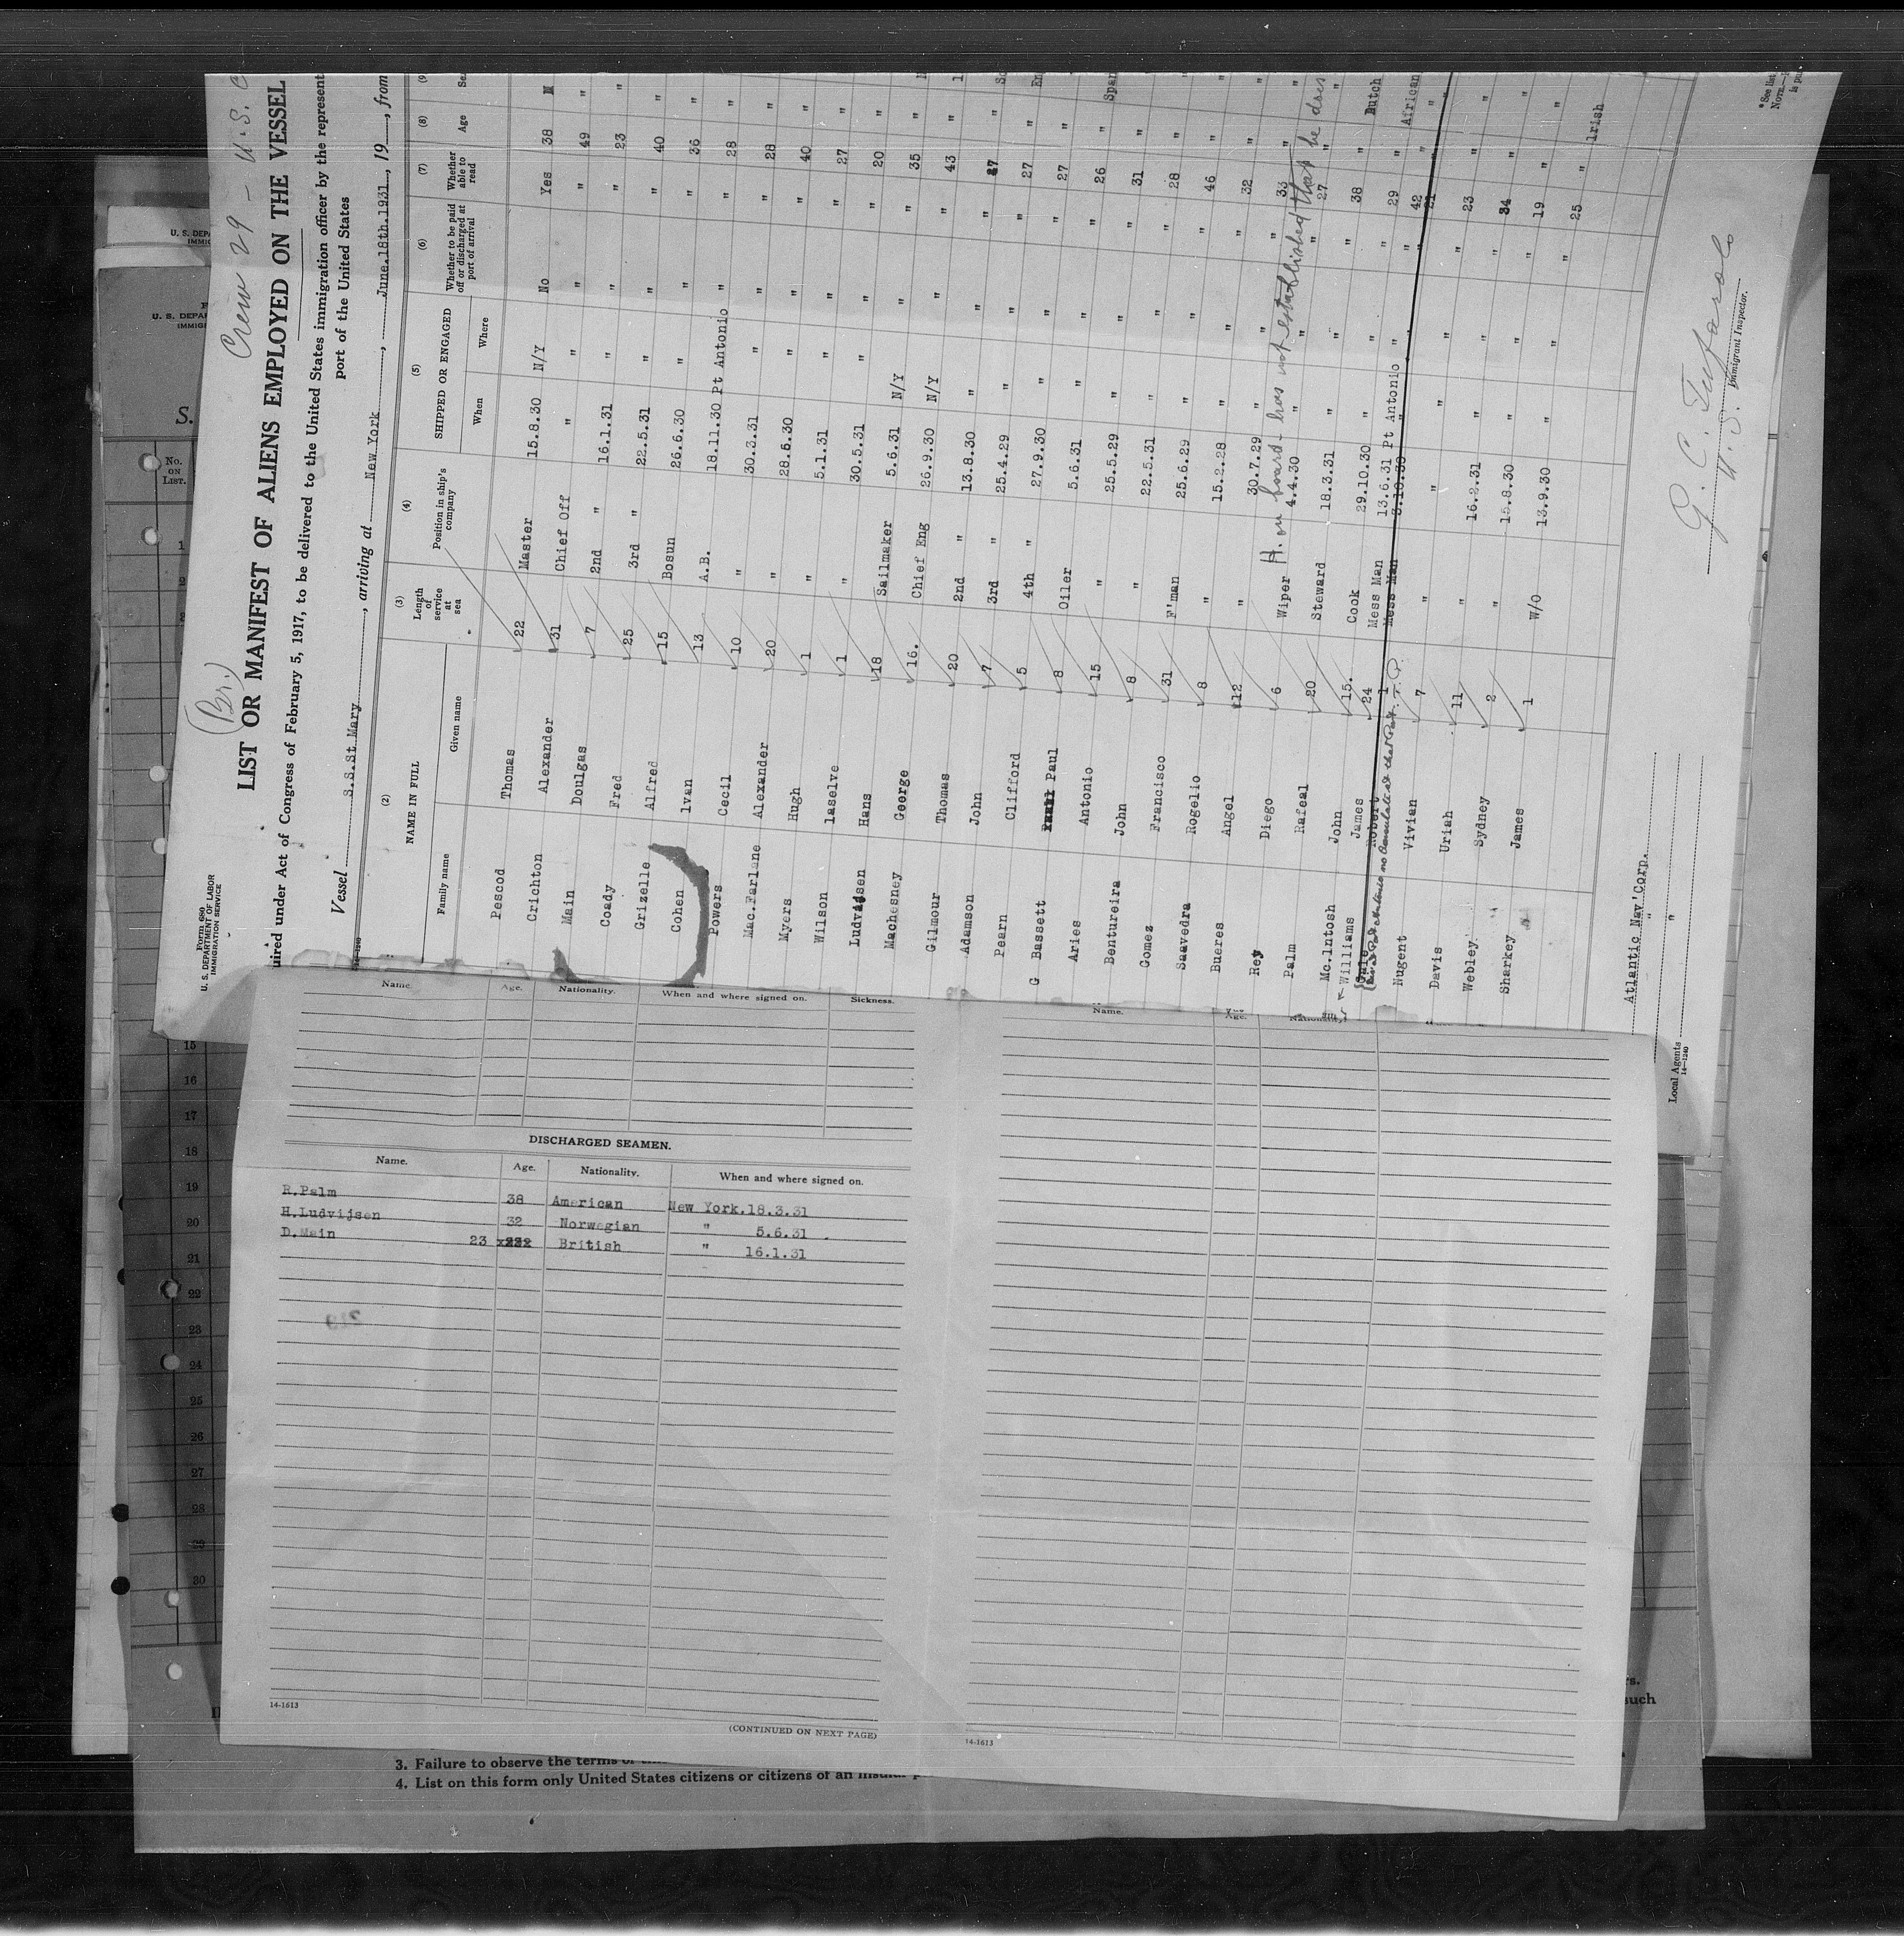 Crew 29 — U.S.
(Br.)
Form 680
U. S. DEPARTMENT OF LABOR
IMMIGRATION SERVICE
LIST OR MANIFEST OF ALIENS EMPLOYED ON THE VESSEL
uired under Act of Congress of February 5, 1917, to be delivered to the United States immigration officer by the represent
port of the United States
Vessel S.S.St Mary, arriving at New York, June.18th.1931., 19__, from
(2) (3) (4) (5) (6) (7) (8)
NAME IN FULL Length of service at sea Position in ship's company SHIPPED OR ENGAGED Whether to be paid off or discharged at port of arrival Whether able to read Age
Family name Given name When Where
Pescod Thomas 22 Master 15.8.30 N/Y No Yes 38
Crichton Alexander 31 Chief Off " " " " 49 "
Main Doulgas 7 2nd " 16.1.31 " " " 23 "
Coady Fred 25 3rd " 22.5.31 " " " 40 "
Grizelle Alfred 15 Bosun 26.6.30 " " " 36 "
Cohen Ivan 13 A.B. 18.11.30 Pt Antonio " " 28 "
Powers Cecil 10 " 30.3.31 " " " 28 "
Mac.Farlane Alexander 20 " 28.6.30 " " " 40 "
Myers Hugh 1 " 5.1.31 " " " 27 "
Wilson laselve 1 " 30.5.31 " " " 20 "
Ludvigsen Hans 18 Sailmaker 5.6.31 N/Y " " 35 "
Machesney George 16. Chief Eng 26.9.30 N/Y " " 43
Gilmour Thomas 20 2nd " 13.8.30 " " " 27 "
Adamson John 7 3rd " 25.4.29 " " " 27 "
Pearn Clifford 5 4th " 27.9.30 " " " 27 "
G Bassett Paul 8 Oiler 5.6.31 " " " 26 "
Aries Antonio 15 " 25.5.29 " " " 31 " Span
Bentureira John 8 " 22.5.31 " " " 28 "
Gomez Francisco 31 F'man 25.6.29 " " " 46 "
Saavedra Rogelio 8 " 15.2.28 " " " 32 "
Bueres Angel 12 " 30.7.29 " " " 33 "
Rey Diego 6 Wiper 4.4.30 " " " 27 "
H. on board - has not established that he does
Palm Rafeal 20 Steward 18.3.31 " " " 38 " Dutch
Mc.lntosh John 15. Cook 29.10.30 " " " 29 " African
Williams James 24 Mess Man 13.6.31 Pt Antonio " " 42 "
Robert 1 Mess Man 3.10.30 " " " 21 "
Nugent Vivian 7 " " " " " 23 "
Davis Uriah 11 " 16.2.31 " " " 34 "
Webley Sydney 2 " 15.8.30 " " " 19 "
Sharkey James 1 W/O 13.9.30 " " " 25 " Irish
Atlantic Nav'Corp.
" "
Local Agents
14-1240
U. S. Immigrant Inspector.
* See list
Note.—
U. S. DEPA
IMMIG
U. S. DEPAR
IMMIGR
S.
No. ON LIST.
1
2
3
15
16
17
18
19
20
21
22
23
24
25
26
27
28
29
30
Name. Age. Nationality. When and where signed on. Sickness.
DISCHARGED SEAMEN.
Name. Age. Nationality. When and where signed on.
R.Palm 38 American New York.18.3.31
H.Ludvijsen 32 Norwegian " 5.6.31
D.Main 23 British " 16.1.31
14-1613
(CONTINUED ON NEXT PAGE)
Name. Age. Nationality.
14-1613
rs.
such
3. Failure to observe the terms of
4. List on this form only United States citizens or citizens of an insular p